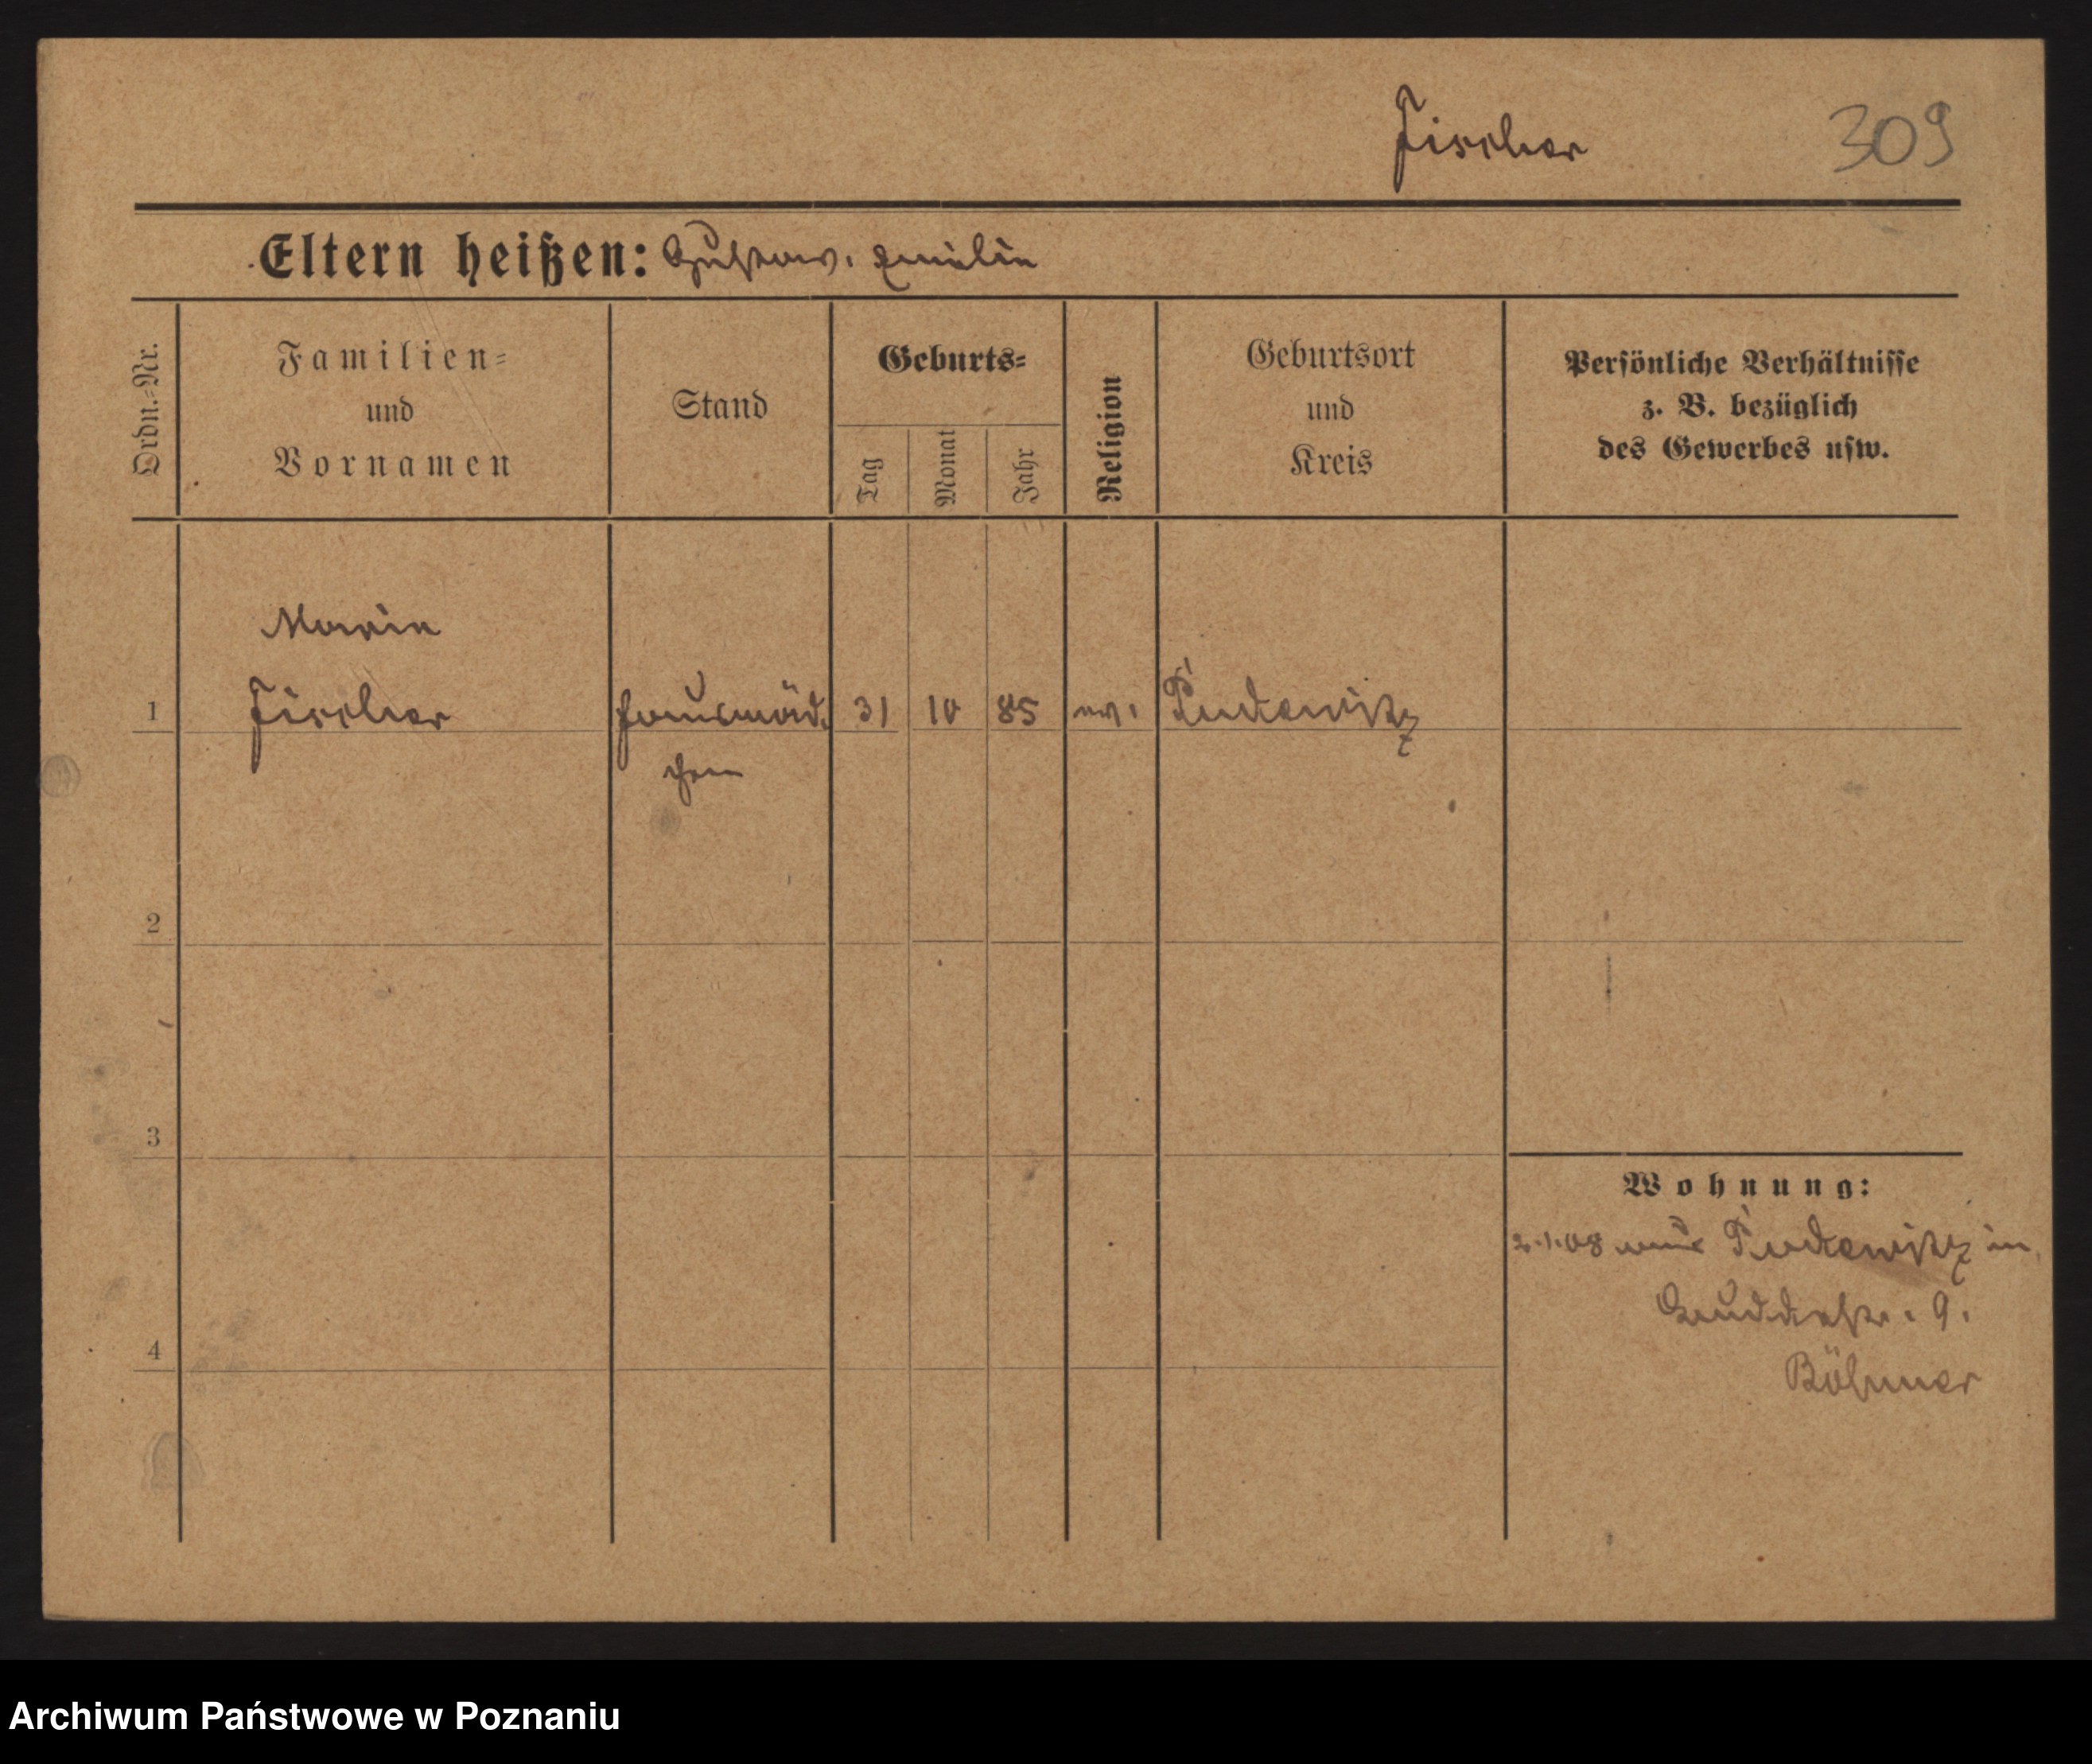 Fischer 309
Eltern heißen: Gustav. Emilie
Ordn.-Nr.
Familien-
und
Vornamen
Stand
Geburts-
Tag
Monat
Jahr
Religion
Geburtsort
und
Kreis
Persönliche Verhältnisse
z. B. bezüglich
des Gewerbes usw.
Marie
1 Fischer Hausmäd- 31 10 85 ev. Pudewitz
chen
2
3
Wohnung:
2.1.08 aus Pudewitz in
9.
4
Böhmer
Archiwum Państwowe w Poznaniu